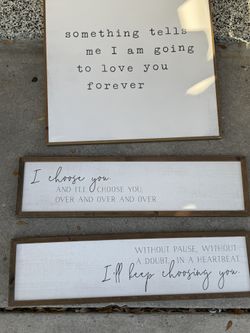 something tells
me I am going
to love you
forever
I choose you
AND I'LL CHOOSE YOU,
OVER AND OVER AND OVER
WITHOUT PAUSE, WITHOUT
A DOUBT, IN A HEARTBEAT.
I'll keep choosing you